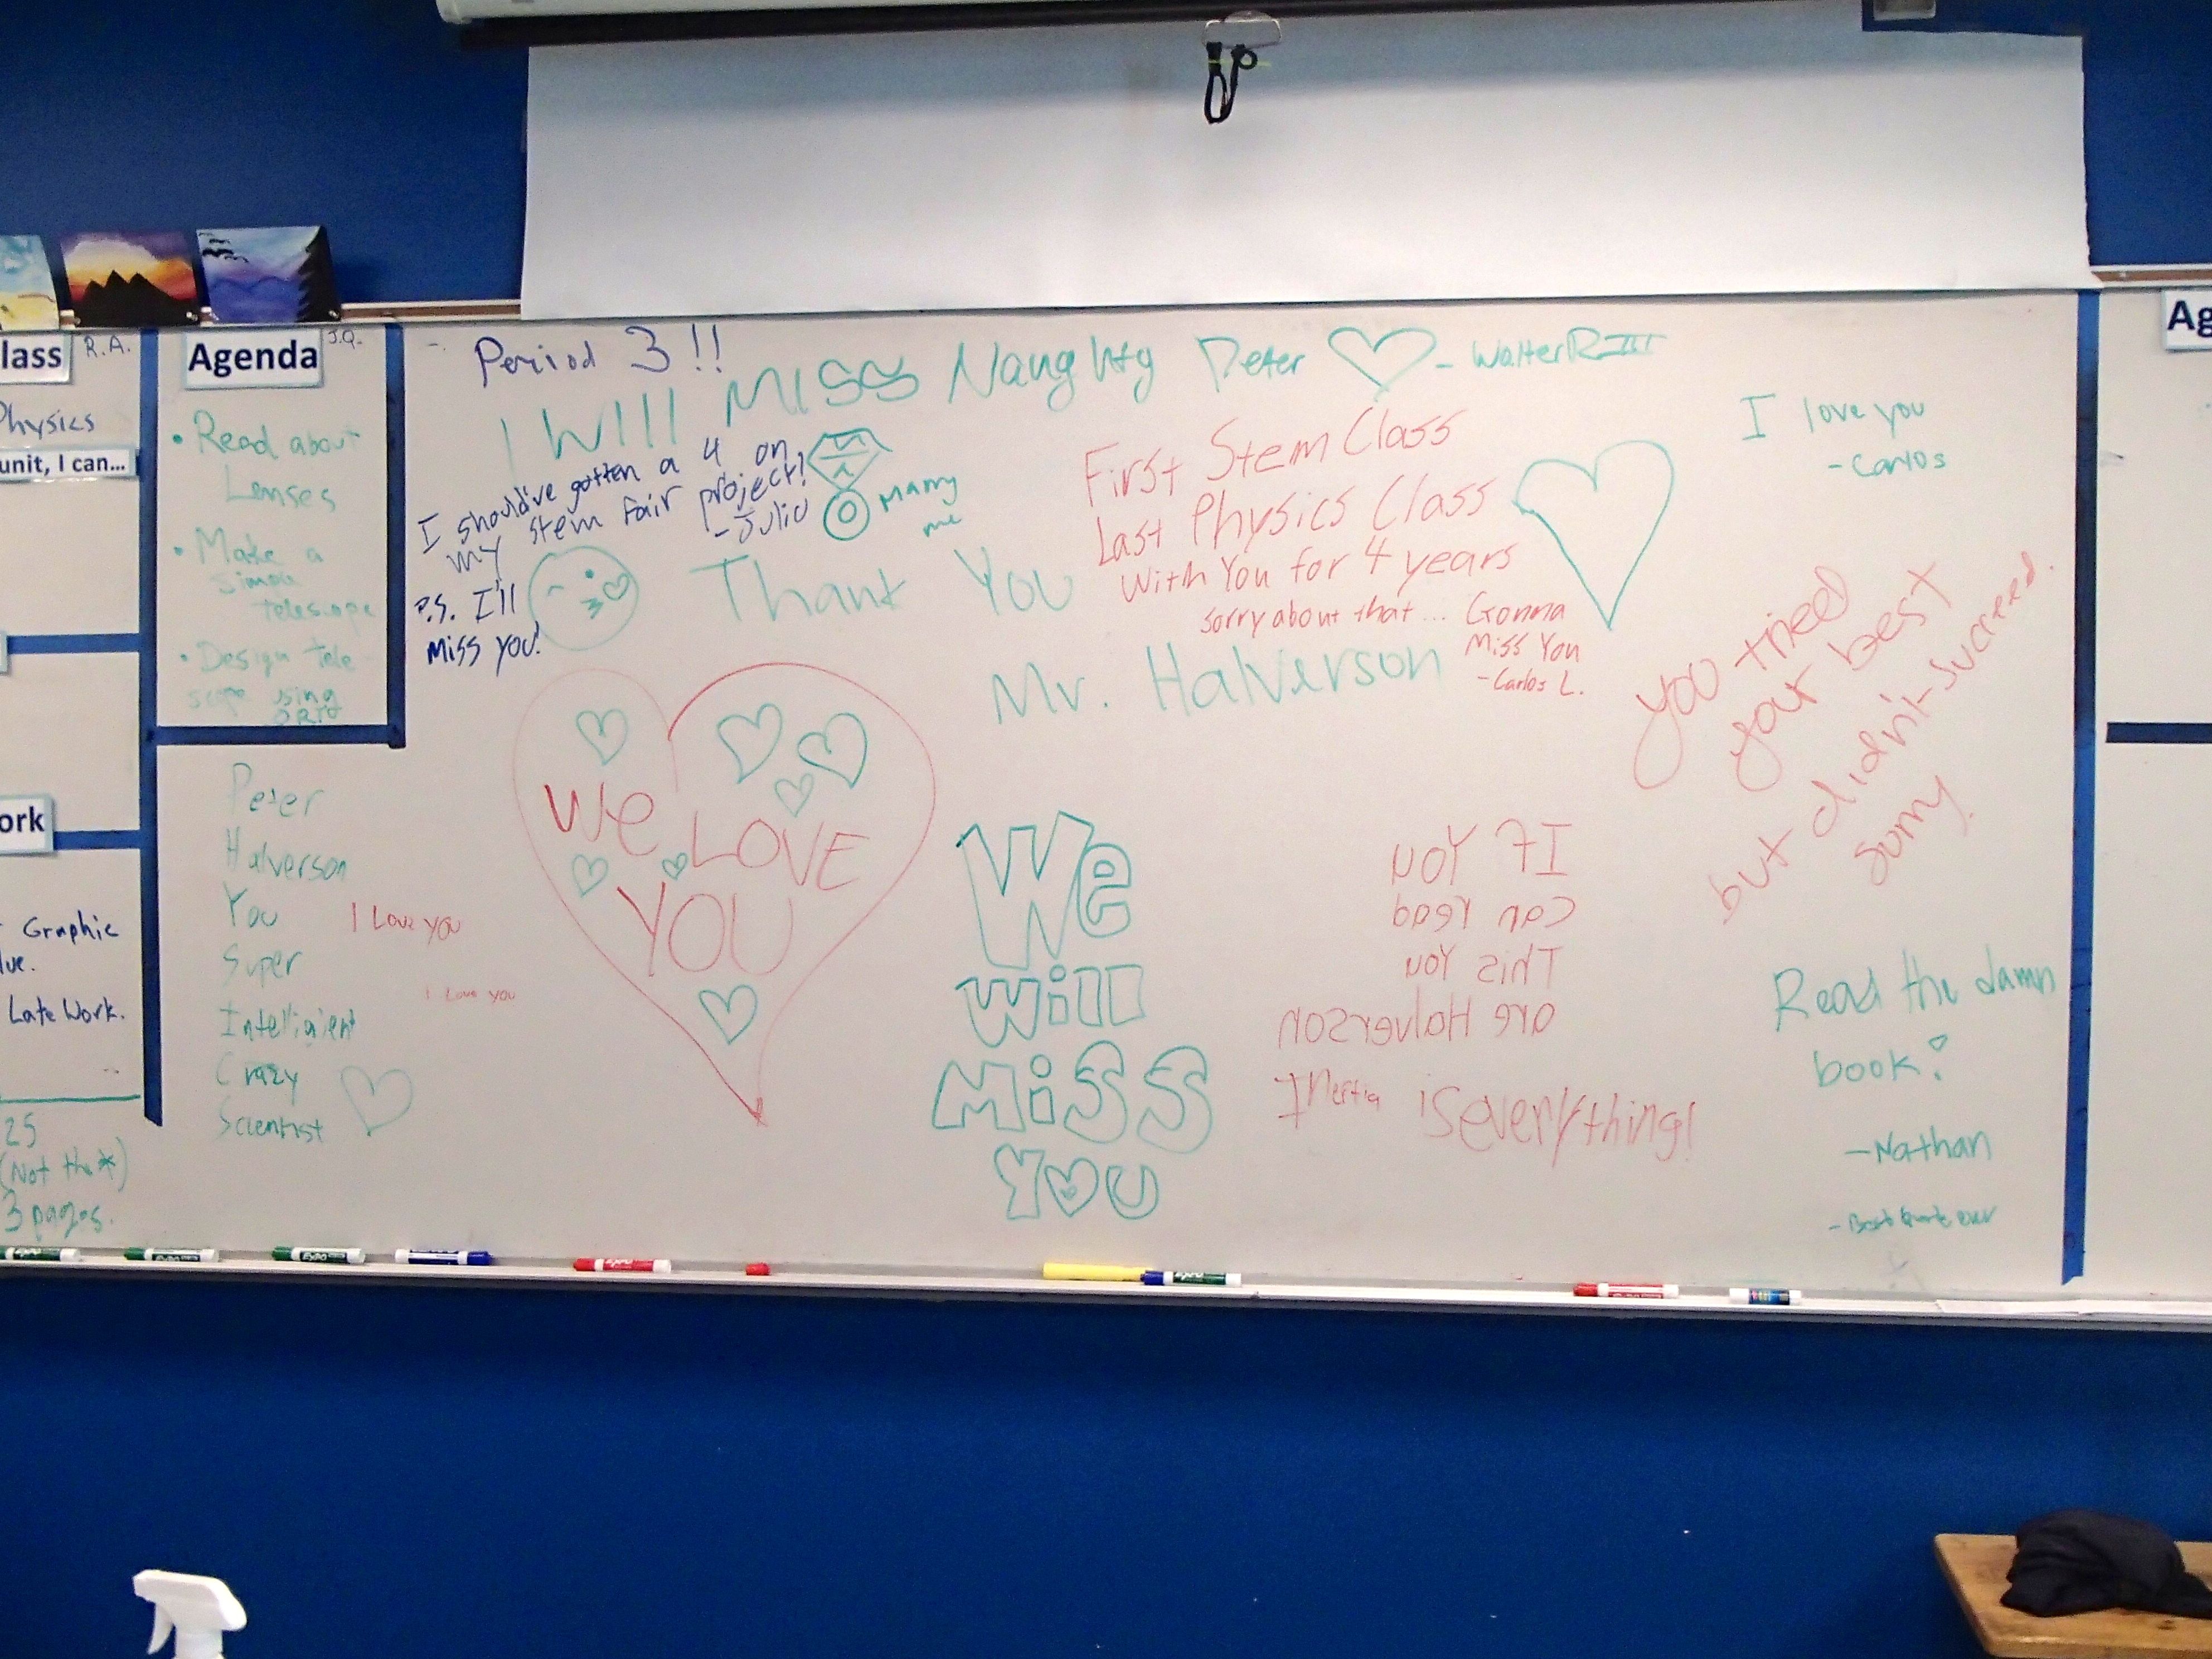 lass
R.A.
Physics
unit, I can...
ork
Graphic
lue.
Late Work.
25
(Not the *)
3 pages.
Agenda
J.Q.
• Read about
Lenses
• Make a
simple
telescope
• Design tele
scope using
Peter
Halverson
You
Super
Intelligient
Crazy
Scientist
I Love you
I Love you
Period 3 !!
I Will MISS Naughty Peter - Walter R III
I should've gotten a 4 on
my stem fair project!
- Julio
P.S. I'll
Miss you!
Marry
me
Thank You
Mr. Halverson
First Stem Class
Last Physics Class
With You for 4 years
Sorry about that... Gonna
Miss You
- Carlos L.
I love you
- Carlos
you tried
your best
but didn't succeed.
Sorry.
We LOVE
YOU
We
Will
Miss
You
If You
Can read
This You
are Halverson
Inertia is everything!
Read the damn
book!
- Nathan
- Best quote ever
Ag
expo
expo